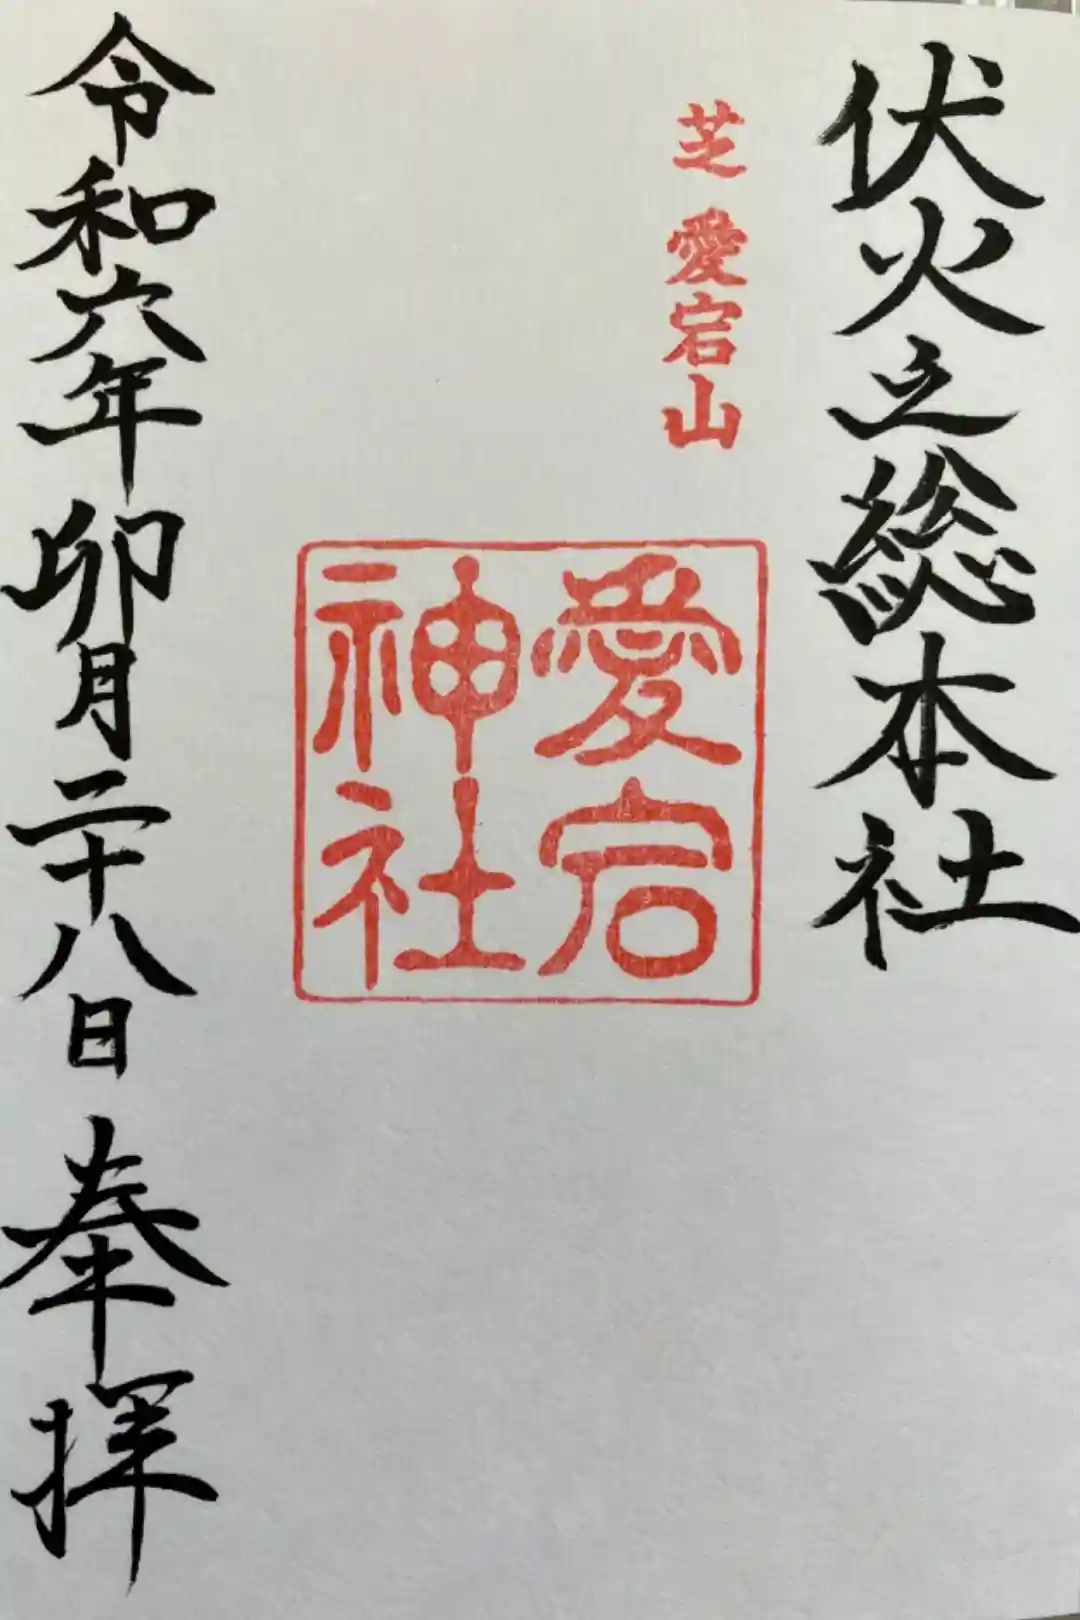 伏火之総本社
芝 愛宕山
愛宕
神社
令和六年卯月二十八日 奉拝